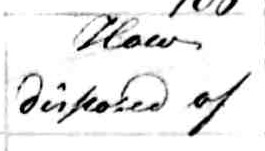 How
disposed of